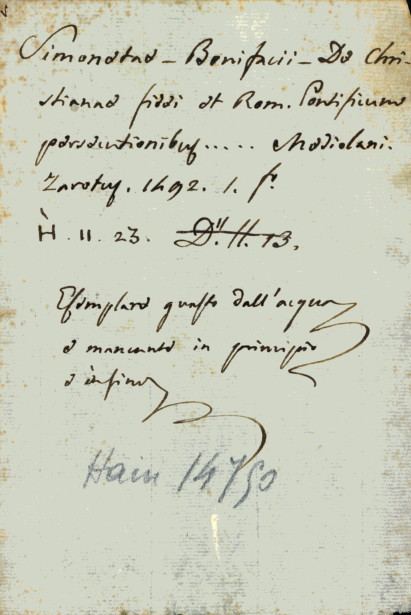 Simonetae - Bonifacii - De Chri-
stianae fidei et Rom. Pontificum
persecutionibus ..... Mediolani.
Zarotus. 1492. 1. fo.
H. 11. 23. D. II. 13.
Esemplare guasto dall'acqua
e mancante in principio
e infine
Hain 14750